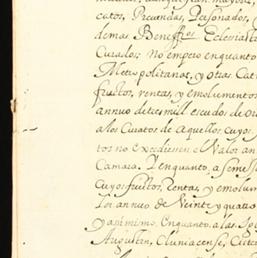 catos, Preuendas, Personados, y
demas Beneffos Ecclesiast
Curados: No empero enquanto
Metropolitanos, y otras Cat
fructos, rentas, y emolumentos
annuo detres mill escudos de oro
alos Curatos de Aquellos cuyos
tos no excedieren el Valor an
Camara. Y enquanto, a semejs
Cuyos fructos, rentas, y emolum
lor annuo de Veinte y quatro
yasimismo. Enquanto, a las Igl
Augustin, Cluniacense, Ciste